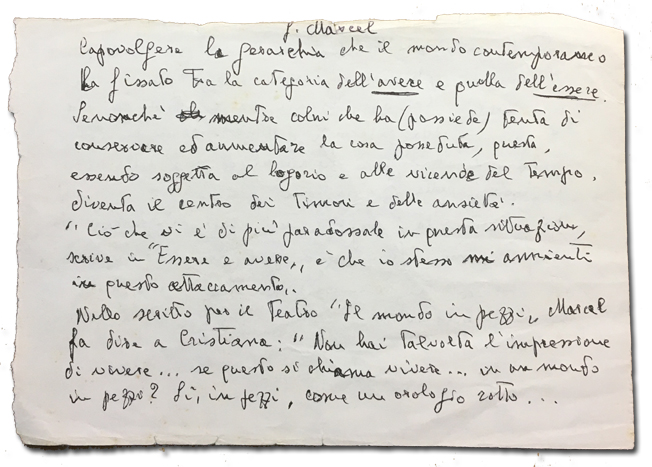 G. Marcel
Capovolgere la gerarchia che il mondo contemporaneo
ha fissato tra la categoria dell'avere e quella dell'essere.
Senonché mentre colui che ha (possiede) tenta di
conservare ed aumentare la cosa posseduta, questa,
essendo soggetta al logorio e alle vicende del tempo,
diventa il centro dei timori e delle ansietà.
"Ciò che vi è di più paradossale in questa situazione,
scrive in "Essere e avere", è che io stesso mi annienti
in questo attaccamento".
Nello scritto per il teatro "Il mondo in pezzi", Marcel
fa dire a Cristiana: "Non hai talvolta l'impressione
di vivere... se questo si chiama vivere... in un mondo
in pezzi? Sì, in pezzi, come un orologio rotto...